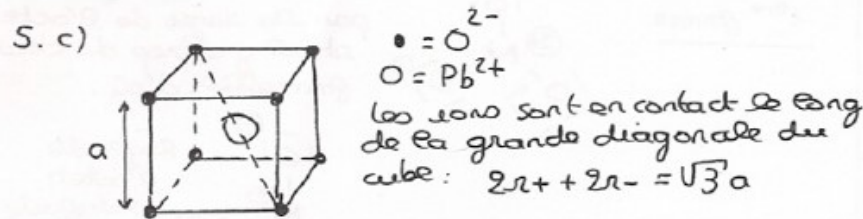 5. c)
• = O²⁻
O = Pb²⁺
Les ions sont en contact le long
de la grande diagonale du
cube : 2r+ + 2r- = √3 a
a